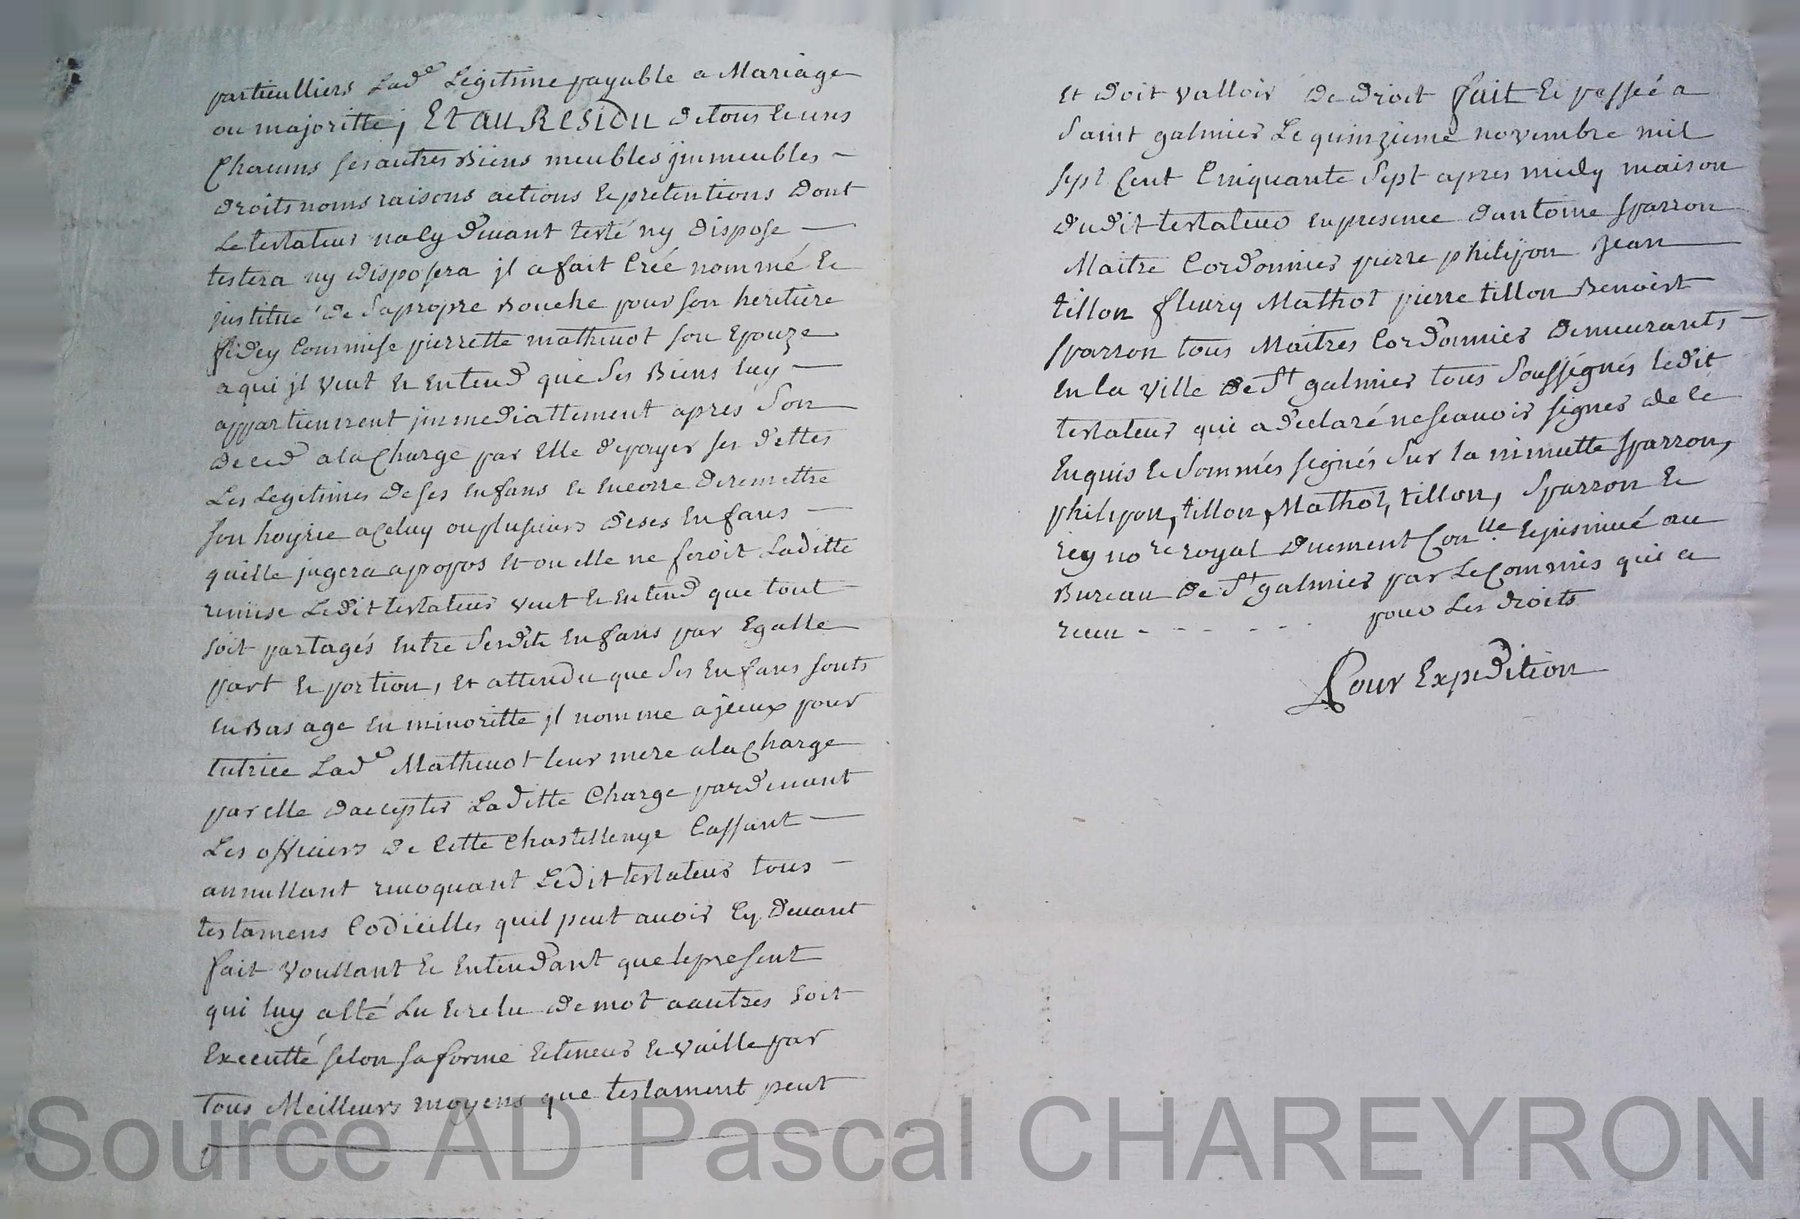 particulliers Lad.e Legitime payable a Mariage
ou majoritté; Et au Residu de tous Et uns
Chacuns ses autres Biens meubles jmmeubles –
droits noms raisons actions Et pretentions Dont
Le testateur na cy devant testé ny dispose –
testera ny disposera jl a fait Créé nommé Et
jnstitué de sa propre Bouche pour son heritiere
fidey Commise pierrette mathevot son Epouze
a qui jl veut Et Entend que ses Biens luy –
appartiennent jmmediattement apres son
deced a la Charge par Elle de payer ses dettes
Les Legitimes de ses Enfans Et Encorre de remettre
son hoyrie a Celuy ou plusieurs de ses Enfans –
quelle jugera apropos Et ou elle ne feroit Laditte
remise Ledit testateur veut Et Entend que tout
soit partagés Entre sesdits Enfans par Egalle
part Et portion, Et attendu que ses Enfans sonts
En Bas age En minoritte jl nomme a jceux pour
tutrice Lad.e Mathevot leur mere a la Charge
par elle daccepter Laditte Charge pardevant
Les officiers de Cette Chastellenye Cassant –
annullant revoquant Ledit testateur tous –
testamens Codicilles quil peut avoir Cy devant
fait voullant Et Entendant que le present
qui luy a Eté Lu Et relu de mot a autres soit
Executté selon sa forme Et teneur Et vaille par
tous Meilleurs moyens que testament peut
Et doit valloir de droit fait Et passé a
saint galmier Le quinzieme novembre mil
sept Cent Cinquante sept apres midy maison
dudit testateur En presence dantoine sparron
Maitre Cordonnier pierre philipon Jean
tillon fleury Mathot pierre tillon Benoist
sparron tous Maitres Cordonnier demeurants –
En la ville de St galmier tous soussignés ledit
testateur qui a declaré ne scavoir signer de ce
Enquis Et sommés signés sur la minutte sparron,
philipon, tillon, Mathot, tillon, sparron Et
rey no.re royal duement Con.lle Et jnsinué au
Bureau de St galmier par Le Commis qui a
receu - - - - - - pour Les droits
Pour Expedition
Source AD Pascal CHAREYRON